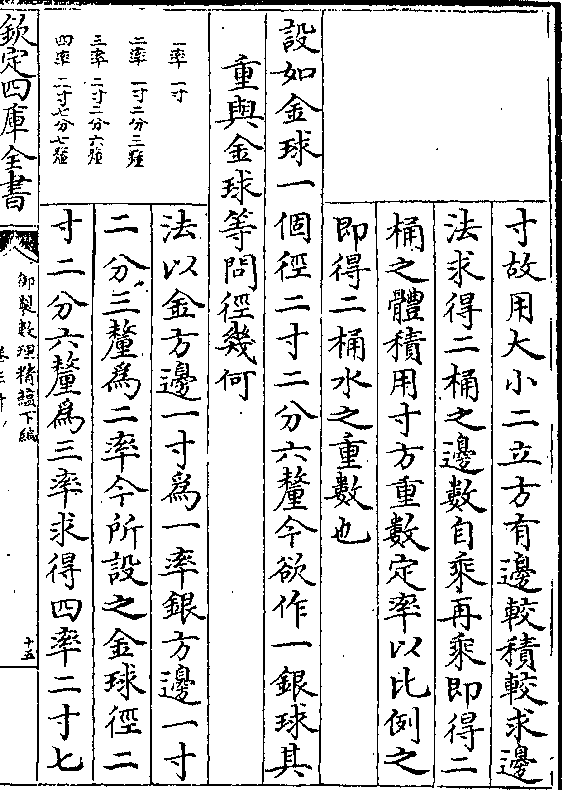 寸故用大小二立方有邊較積較求邊
法求得二桶之邊數自乘再乘即得二
桶之體積用寸方重數定率以比例之
即得二桶水之重數也
設如金球一個徑二寸二分六釐今欲作一銀球其
重與金球等問徑幾何
一率 一寸
二率 一寸二分三釐
三率 二寸二分六釐
四率 二寸七分七釐
法以金方邊一寸為一率銀方邊一寸
二分三釐為二率今所設之金球徑二
寸二分六釐為三率求得四率二寸七
欽定四庫全書
御製數理精蘊下編
十五